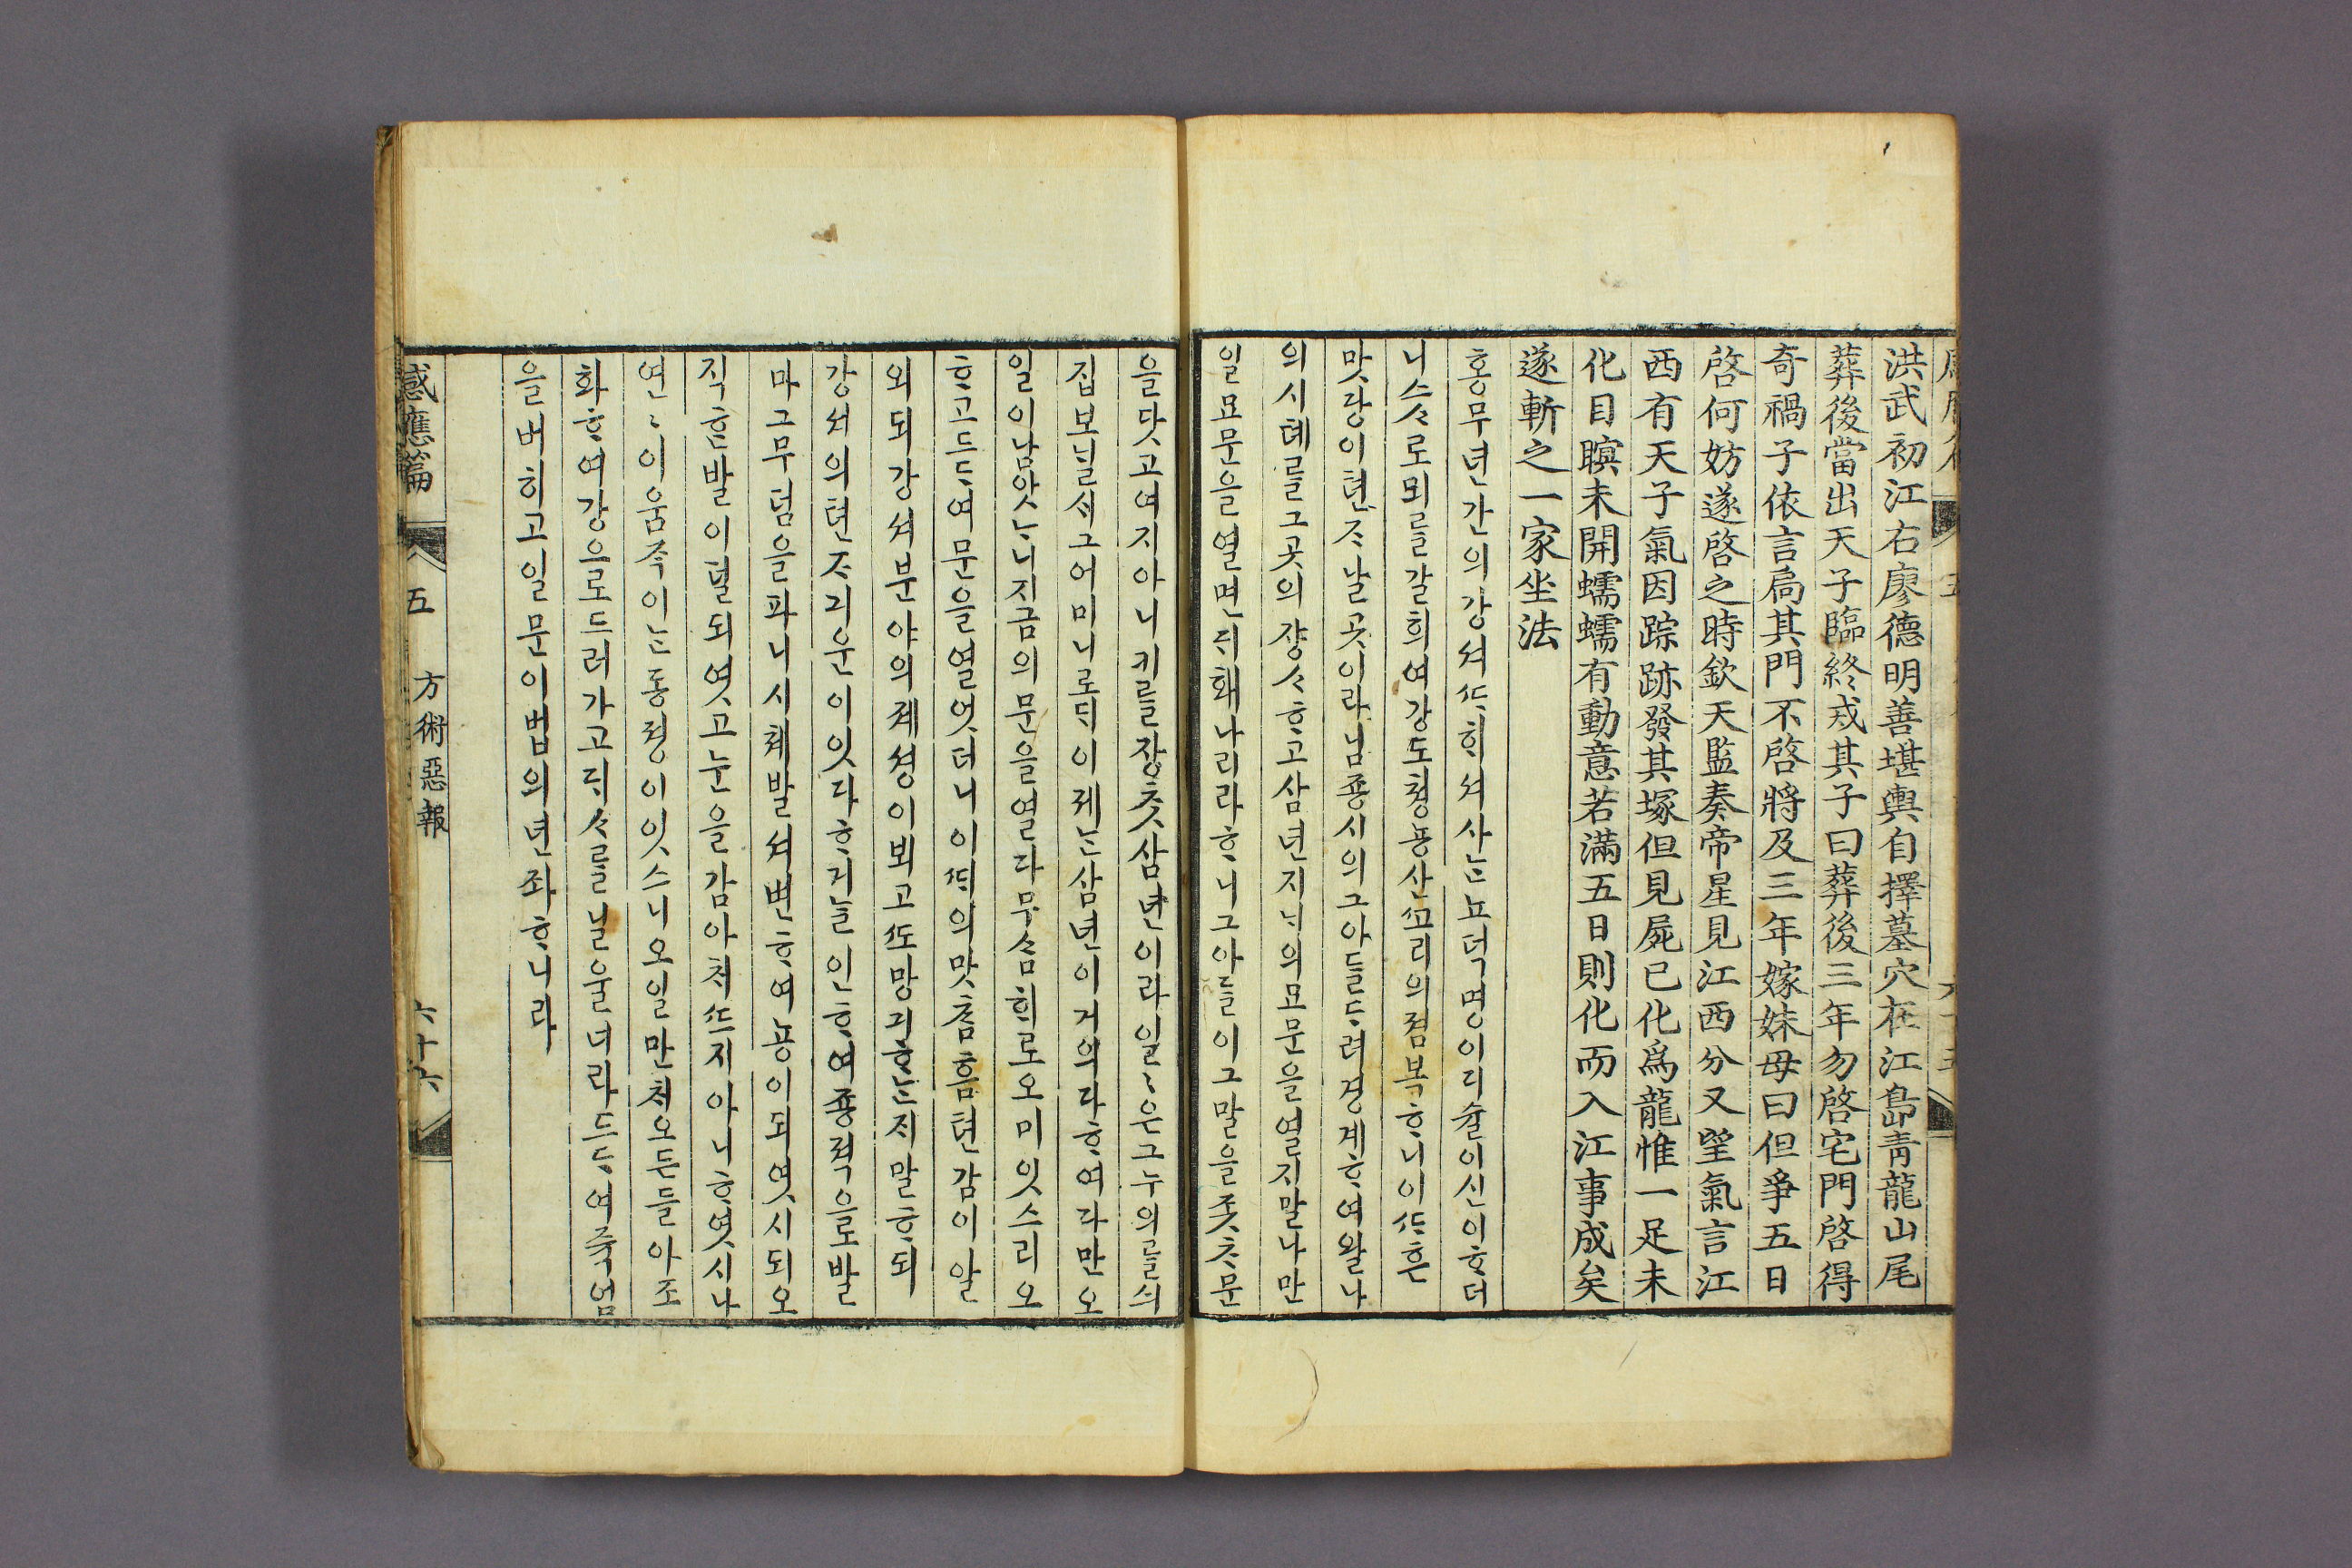 洪武初江右廖德明善堪輿自擇墓穴在江島靑龍山尾
葬後當出天子臨終戒其子曰葬後三年勿啓宅門啓得
奇禍子依言扃其門不啓將及三年嫁妹母曰但爭五日
啓何妨遂啓之時欽天監奏帝星見江西分又望氣言江
西有天子氣因踪跡發其塚但見屍已化爲龍惟一足未
化目瞑未開蠕蠕有動意若滿五日則化而入江事成矣
遂斬之一家坐法
홍무년간의강셔ᄯᅡ희셔사ᄂᆞᆫ뇨덕명이디슐이신이ᄒᆞ더
니스々로뫼ᄅᆞᆯ갈희여강도쳥뇽산ᄭᅩ리의졈복ᄒᆞ니이ᄯᅡ흔
맛당이텬ᄌᆞ날곳이라님죵시의그아ᄃᆞᆯᄃᆞ려경계ᄒᆞ여왈나
의시톄ᄅᆞᆯ그곳의쟝ᄉᆞᄒᆞ고삼년지ᄂᆡ의묘문을열지말나만
일묘문을열면ᄃᆡ홰나리라ᄒᆞ니그아ᄃᆞᆯ이그말을좃ᄎᆞ문
을닷고여지아니키ᄅᆞᆯ쟝ᄎᆞᆺ삼년이라일〻은그누의ᄅᆞᆯ싀
집보ᄂᆡᆯᄉᆡ그어미니ᄅᆞᄃᆡ이제ᄂᆞᆫ삼년이거의다ᄒᆞ여다만오
일이남앗ᄂᆞ니지금의문을열다무ᄉᆞᆷ희로오미잇스리오
ᄒᆞ고드ᄃᆡ여문을열엇더니이ᄯᆡ의맛ᄎᆞᆷ흠텬감이알
외되강셔분야의졔셩이뵈고ᄯᅩ망긔ᄒᆞᄂᆞᆫ지말ᄒᆞ되
강셔의텬ᄌᆞ긔운이잇다ᄒᆞ거ᄂᆞᆯ인ᄒᆞ여죵젹으로발
마그무덤을파니시쳬발셔변ᄒᆞ여뇽이되엿시되오
직ᄒᆞᆫ발이덜되엿고눈을감아쳐ᄯᅳ지아니ᄒᆞ엿시나
연〻이움ᄌᆨ이ᄂᆞᆫ동졍이잇스니오일만쳐오든들아조
화ᄒᆞ여강으로드러가고ᄃᆡᄉᆞᄅᆞᆯ닐울너라드ᄃᆡ여죽엄
을버히고일문이법의년좌ᄒᆞ니라
感應篇
五
方術惡報
六十六